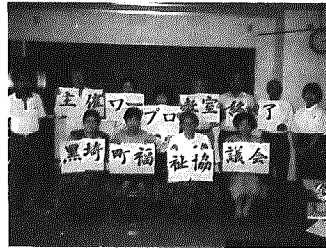 主催ワープロ教室終了
黒埼町福祉協議会